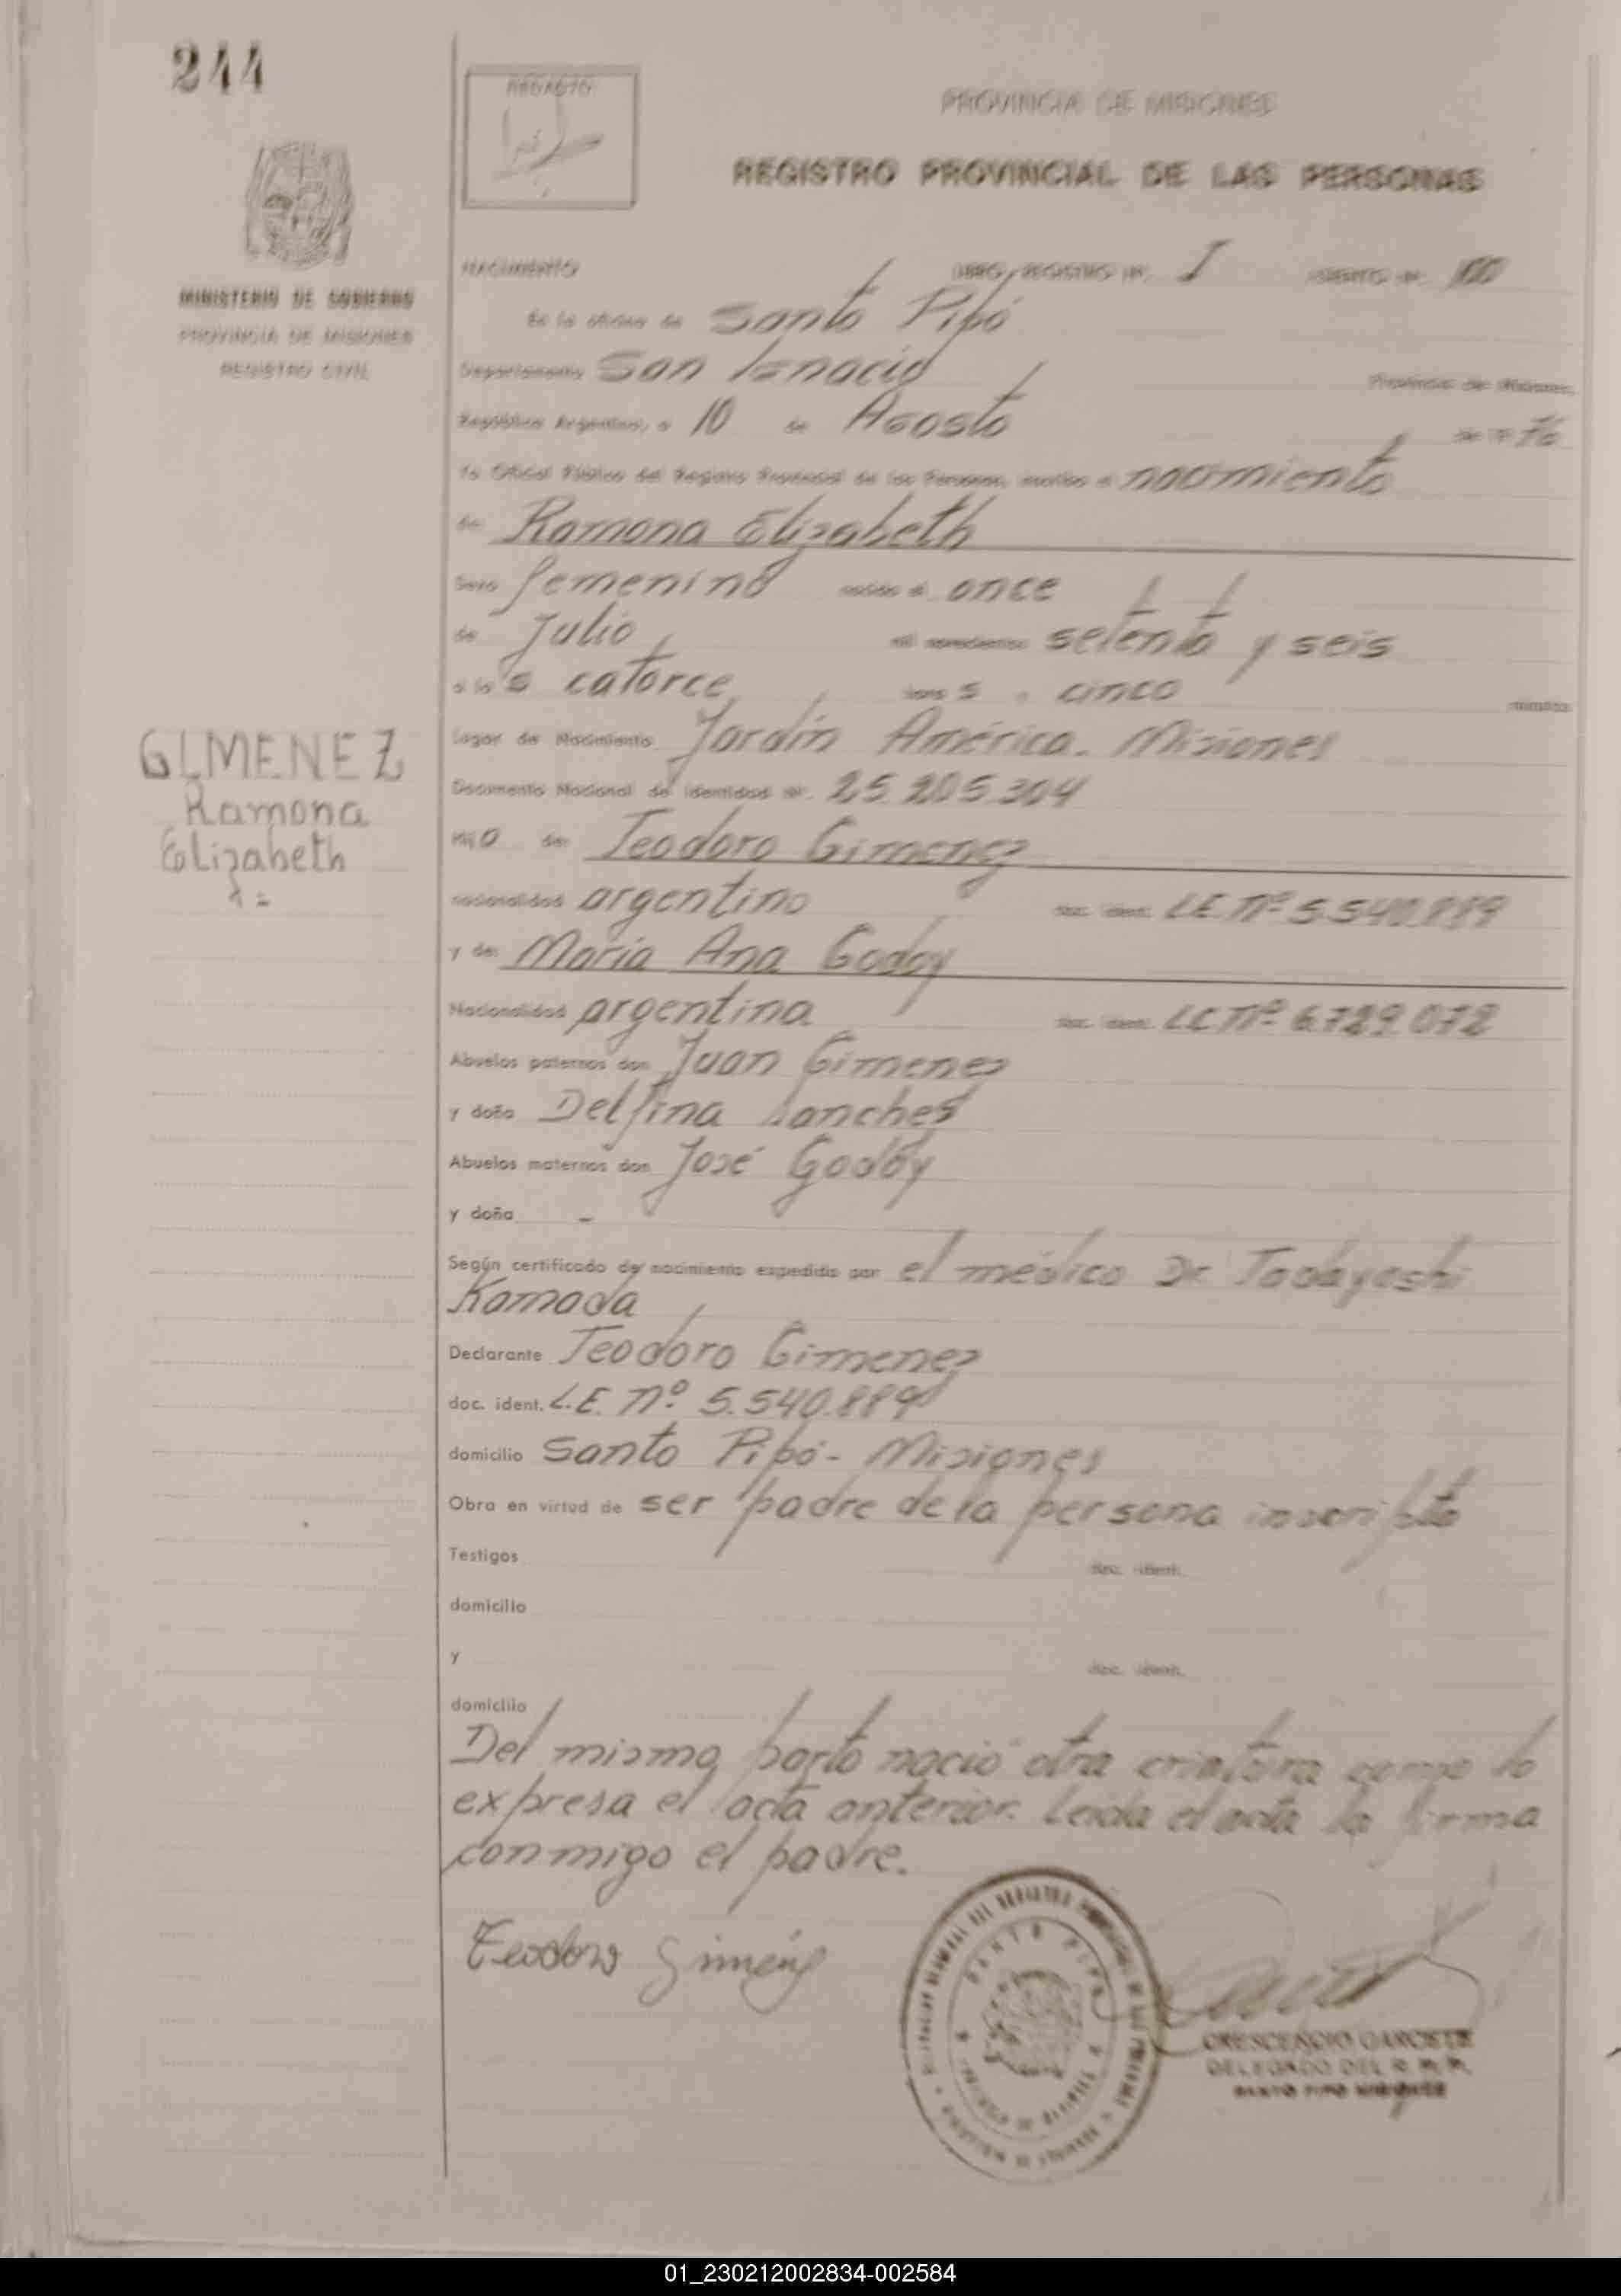 244
PROVINCIA DE MISIONES
REGISTRO PROVINCIAL DE LAS PERSONAS
MINISTERIO DE GOBIERNO
PROVINCIA DE MISIONES
REGISTRO CIVIL
NACIMIENTO LIBRO, REGISTRO Nº. I ASIENTO Nº.
En la oficina de Santo Pipó
Departamento San Ignacio Provincia de Misiones,
República Argentina, a 10 de Agosto de 19 76
Yo Oficial Público del Registro Provincial de las Personas, inscribo el nacimiento
de Ramona Elizabeth
Sexo femenino nacida el once
de Julio mil novecientos setenta y seis
a las catorce horas cinco minutos
Lugar de Nacimiento Jardín América. Misiones
Documento Nacional de Identidad Nº. 25.205.304
GIMENEZ
Ramona
Elizabeth
Hija de Teodoro Gimenez
nacionalidad argentino doc. ident. LE. Nº 5.540.889
y de María Ana Godoy
Nacionalidad argentina doc. ident. LC Nº 6.729.072
Abuelos paternos don Juan Gimenez
y doña Delfina Sanchez
Abuelos maternos don José Godoy
y doña -
Según certificado de nacimiento expedido por el médico Dr Tadayoshi
Kamada
Declarante Teodoro Gimenez
doc. ident. L.E. Nº 5.540.889
domicilio Santo Pipó - Misiones
Obra en virtud de ser padre de la persona inscripta
Testigos doc. ident.
domicilio
y doc. ident.
domicilio
Del mismo parto nació otra criatura como lo
expresa el acta anterior. Leída el acta la firma
conmigo el padre.
Teodoro Giménez
SANTO PIPO
CRESCENCIO GARCETE
DELEGADO DEL R. P. P.
SANTO PIPO MISIONES
01_230212002834-002584